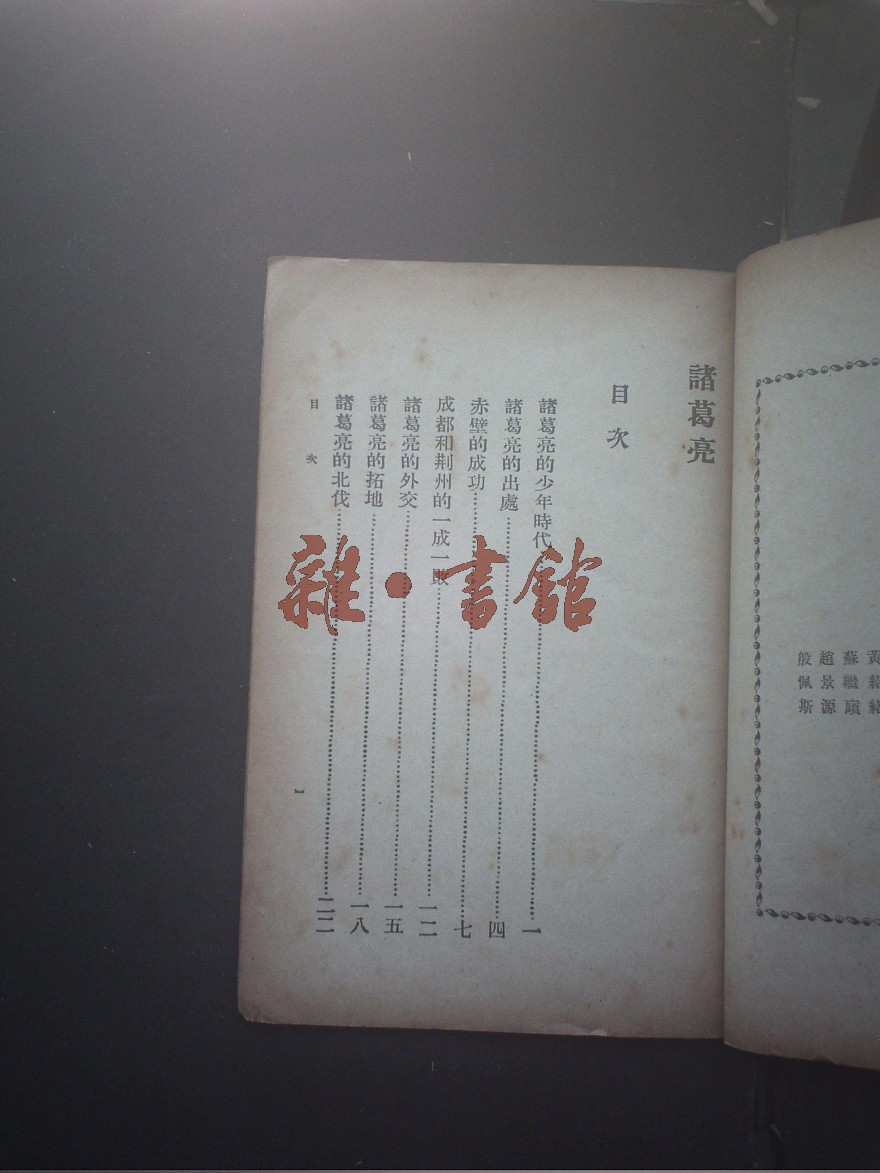 諸葛亮
目次
諸葛亮的少年時代……一
諸葛亮的出處……四
赤壁的成功……七
成都和荆州的一成一敗……一二
諸葛亮的外交……一五
諸葛亮的拓地……一八
諸葛亮的北伐……二二
目次
一
雜·書館
蘇繼廎
趙景源
殷佩斯